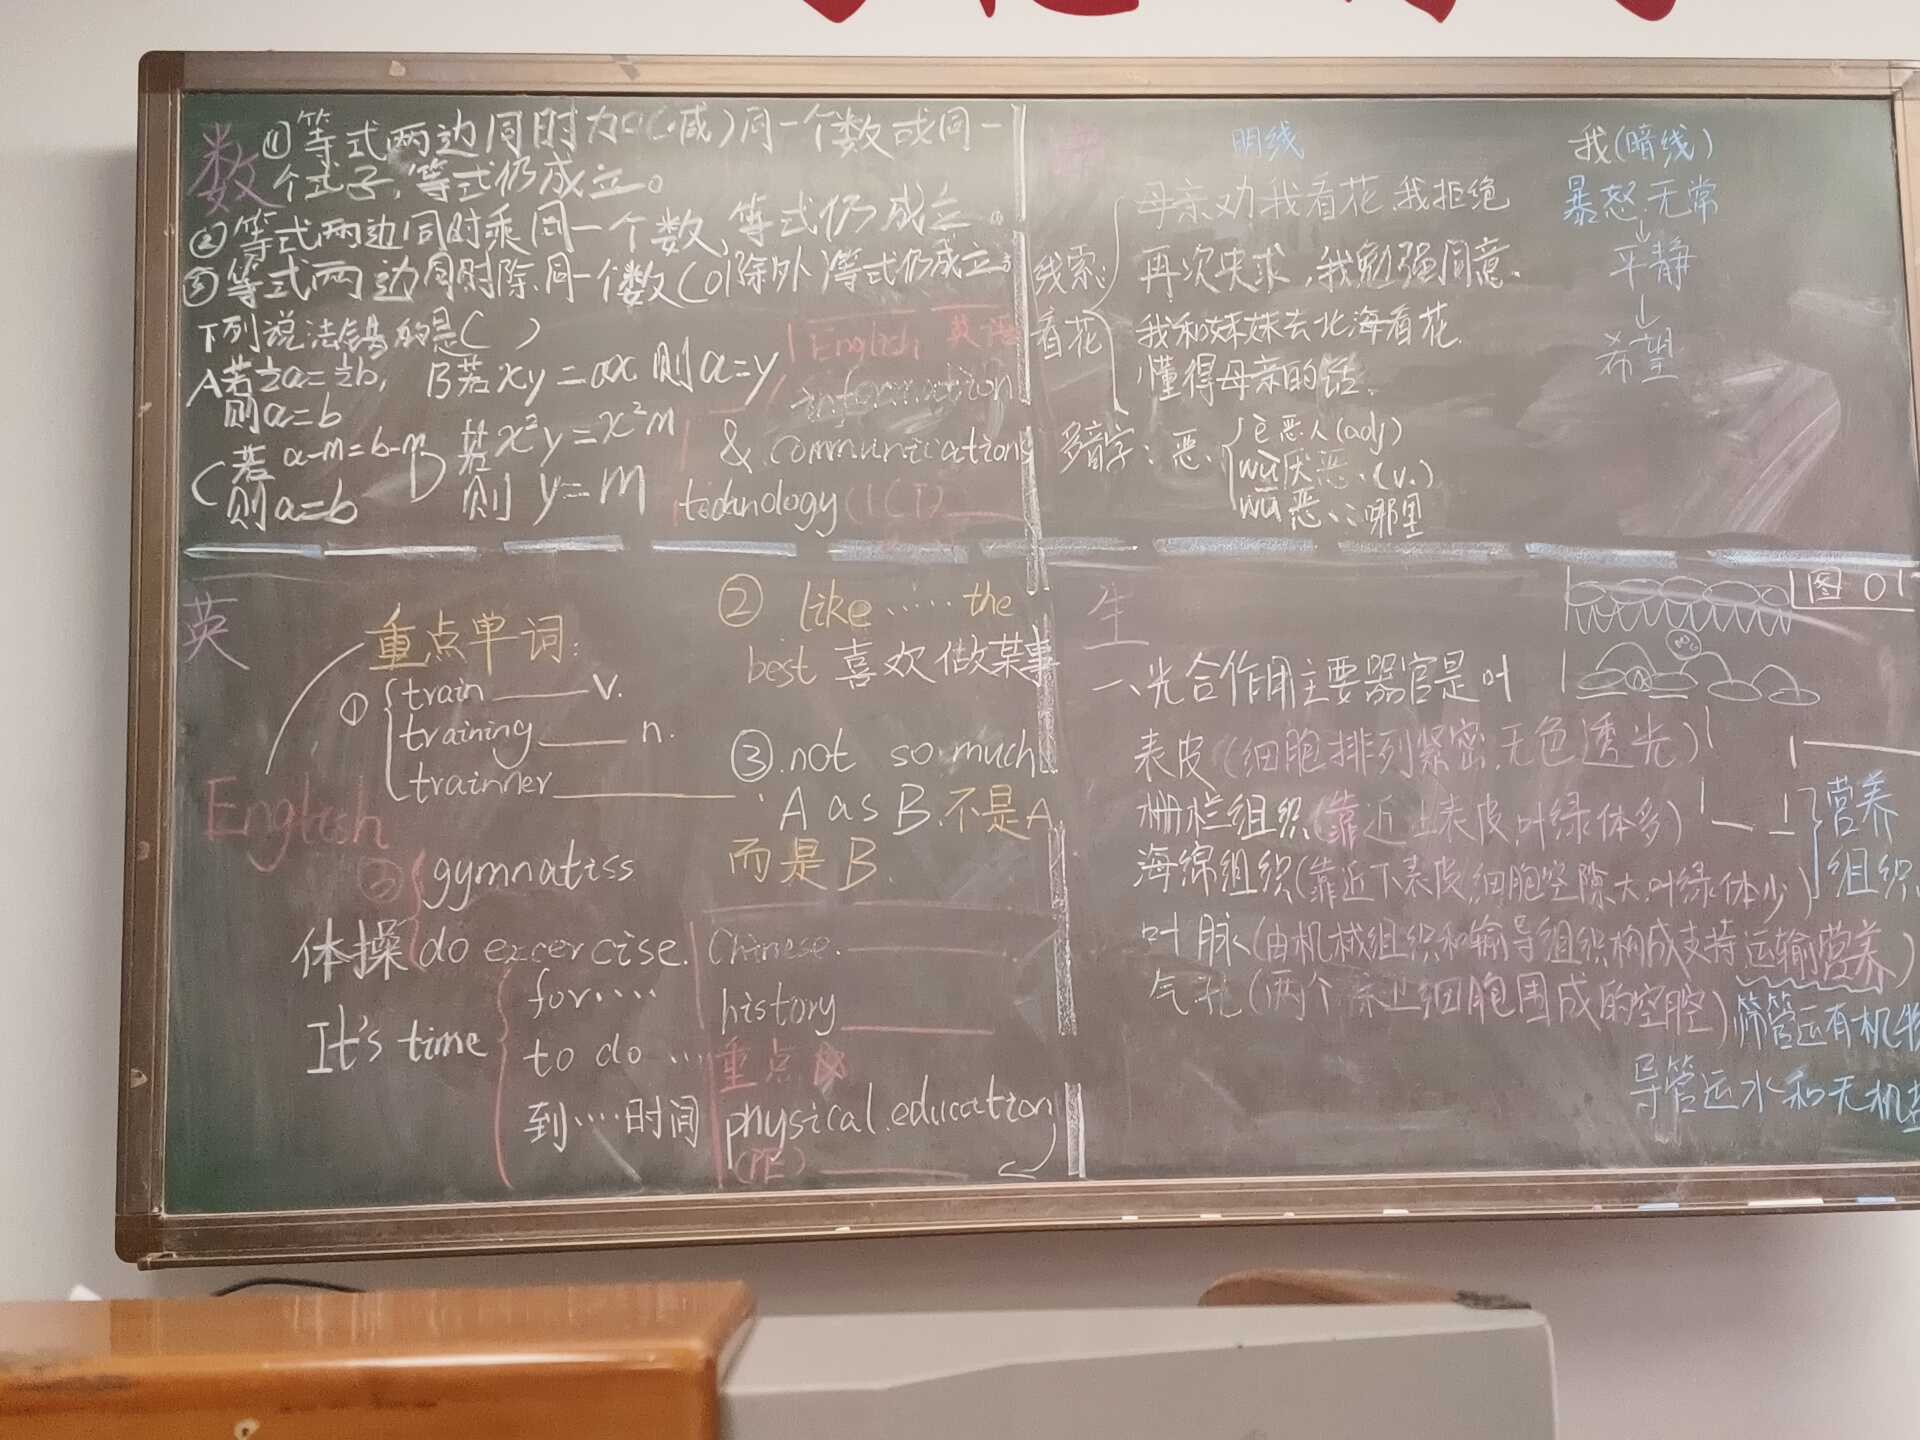 数
①等式两边同时加(减)同一个数或同一
个式子,等式仍成立。
②等式两边同时乘同一个数,等式仍成立。
③等式两边同时除同一个数(0除外)等式仍成立。
下列说法错的是( )
A若½a=½b, B若xy=ax则a=y
则a=b
C若a-m=b-m D若x²y=x²m
则a=b 则 y=m
English 英语
information
& communications
technology (ICT)
明线
我(暗线)
线索:
看花
母亲劝我看花,我拒绝
再次央求,我勉强同意.
我和妹妹去北海看花.
懂得母亲的话.
暴怒无常
↓
平静
↓
希望
多音字:恶.
恶人(adj)
wù厌恶.(v.)
wū恶、:哪里
英
重点单词:
① train v.
training n.
trainner
English
gymnatiss
体操 do excercise.
It's time
for····
to do ···
到····时间
② like ······ the
best 喜欢做某事
③.not so much
A as B.不是A.
而是B.
Chinese.
history
重点
physical.education
(PE)
生
图 01
一、光合作用主要器官是叶
表皮(细胞排列紧密,无色透光)
栅栏组织(靠近上表皮,叶绿体多)
海绵组织(靠近下表皮,细胞空隙大,叶绿体少)
营养
组织.
叶脉(由机械组织和输导组织构成支持运输营养)
气孔(两个保卫细胞围成的空腔)
筛管运有机物
导管运水和无机盐